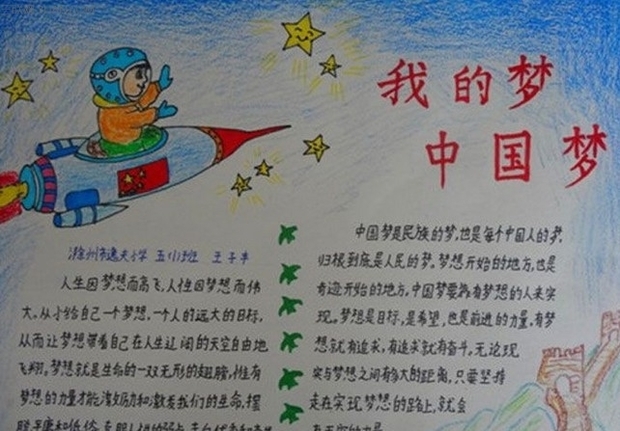 我的梦
中国梦
滁州市逸夫小学 五(1)班 王子丰
人生因梦想而高飞,人性因梦想而伟
大。从小给自己一个梦想,一个人的远大的目标,
从而让梦想带着自己在人生辽阔的天空自由地
飞翔,梦想就是生命的一双无形的翅膀,惟有
梦想的力量才能激励和激发我们的生命,摆
中国梦是民族的梦,也是每个中国人的梦,
归根到底是人民的梦。梦想开始的地方,也是
奇迹开始的地方,中国梦要靠有梦想的人来实
现。梦想是目标,是希望,也是前进的力量,有梦
想就有追求,有追求就有奋斗,无论现
实与梦想之间有多大的距离,只要坚持
走在实现梦想的路上,就会